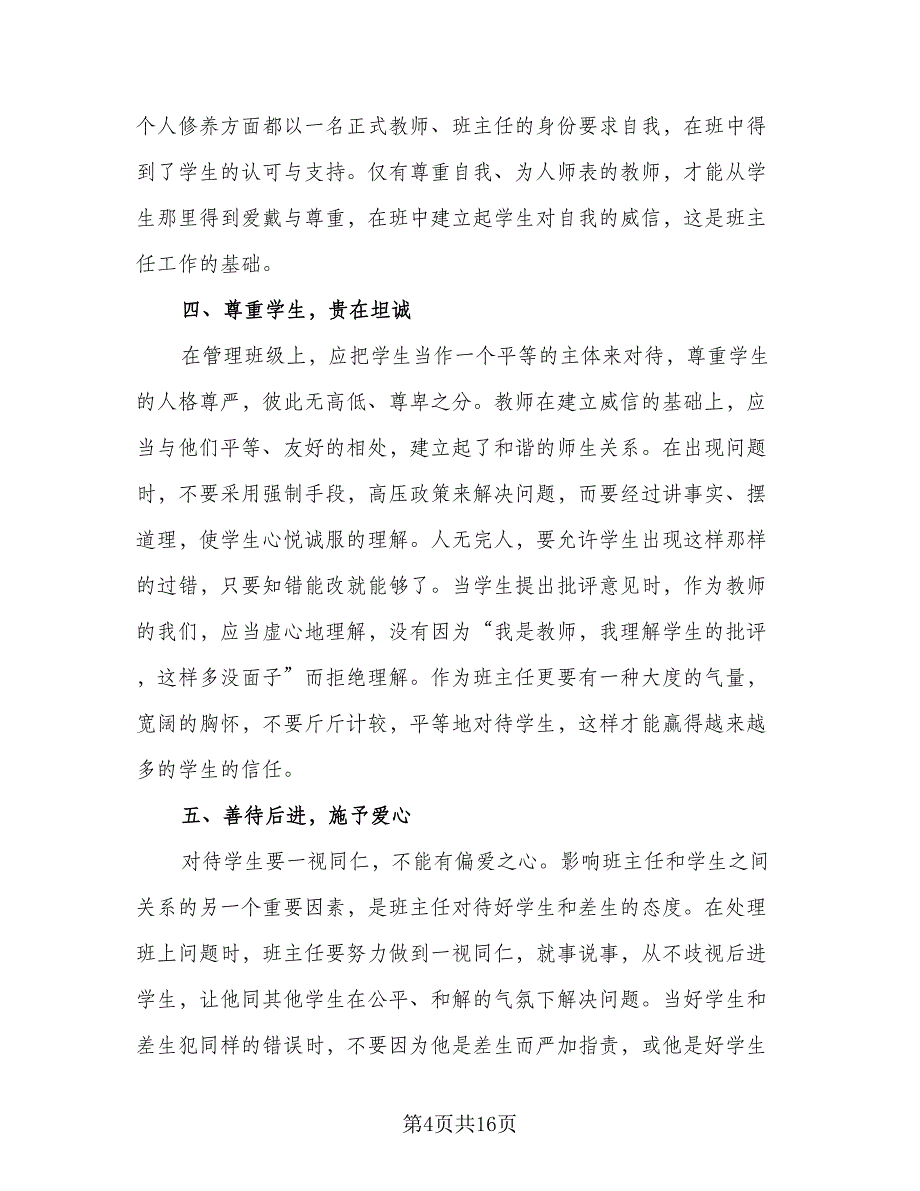 个人修养方面都以一名正式教师、班主任的身份要求自我，在班中得
到了学生的认可与支持。仅有尊重自我、为人师表的教师，才能从学
生那里得到爱戴与尊重，在班中建立起学生对自我的威信，这是班主
任工作的基础。
四、尊重学生，贵在坦诚
在管理班级上，应把学生当作一个平等的主体来对待，尊重学生
的人格尊严，彼此无高低、尊卑之分。教师在建立威信的基础上，应
当与他们平等、友好的相处，建立起了和谐的师生关系。在出现问题
时，不要采用强制手段，高压政策来解决问题，而要经过讲事实、摆
道理，使学生心悦诚服的理解。人无完人，要允许学生出现这样那样
的过错，只要知错能改就能够了。当学生提出批评意见时，作为教师
的我们，应当虚心地理解，没有因为“我是教师，我理解学生的批评
，这样多没面子”而拒绝理解。作为班主任更要有一种大度的气量，
宽阔的胸怀，不要斤斤计较，平等地对待学生，这样才能赢得越来越
多的学生的信任。
五、善待后进，施予爱心
对待学生要一视同仁，不能有偏爱之心。影响班主任和学生之间
关系的另一个重要因素，是班主任对待好学生和差生的态度。在处理
班上问题时，班主任要努力做到一视同仁，就事说事，从不歧视后进
学生，让他同其他学生在公平、和解的气氛下解决问题。当好学生和
差生犯同样的错误时，不要因为他是差生而严加指责，或他是好学生
第4页共16页